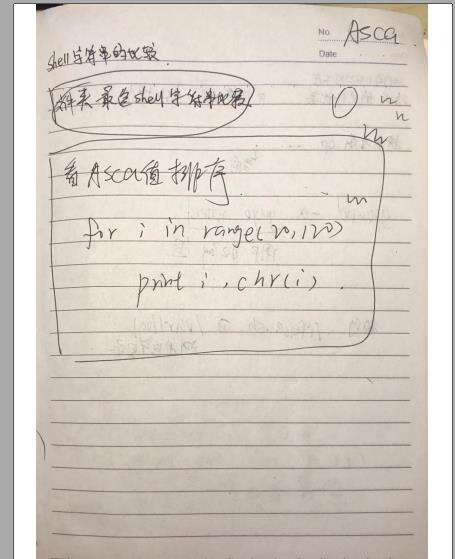 No. Asca
Date
shell字符串的比较.
群英最色shell字符串比较
看Asca值排序
for i in range(20,120)
print i, chr(i).